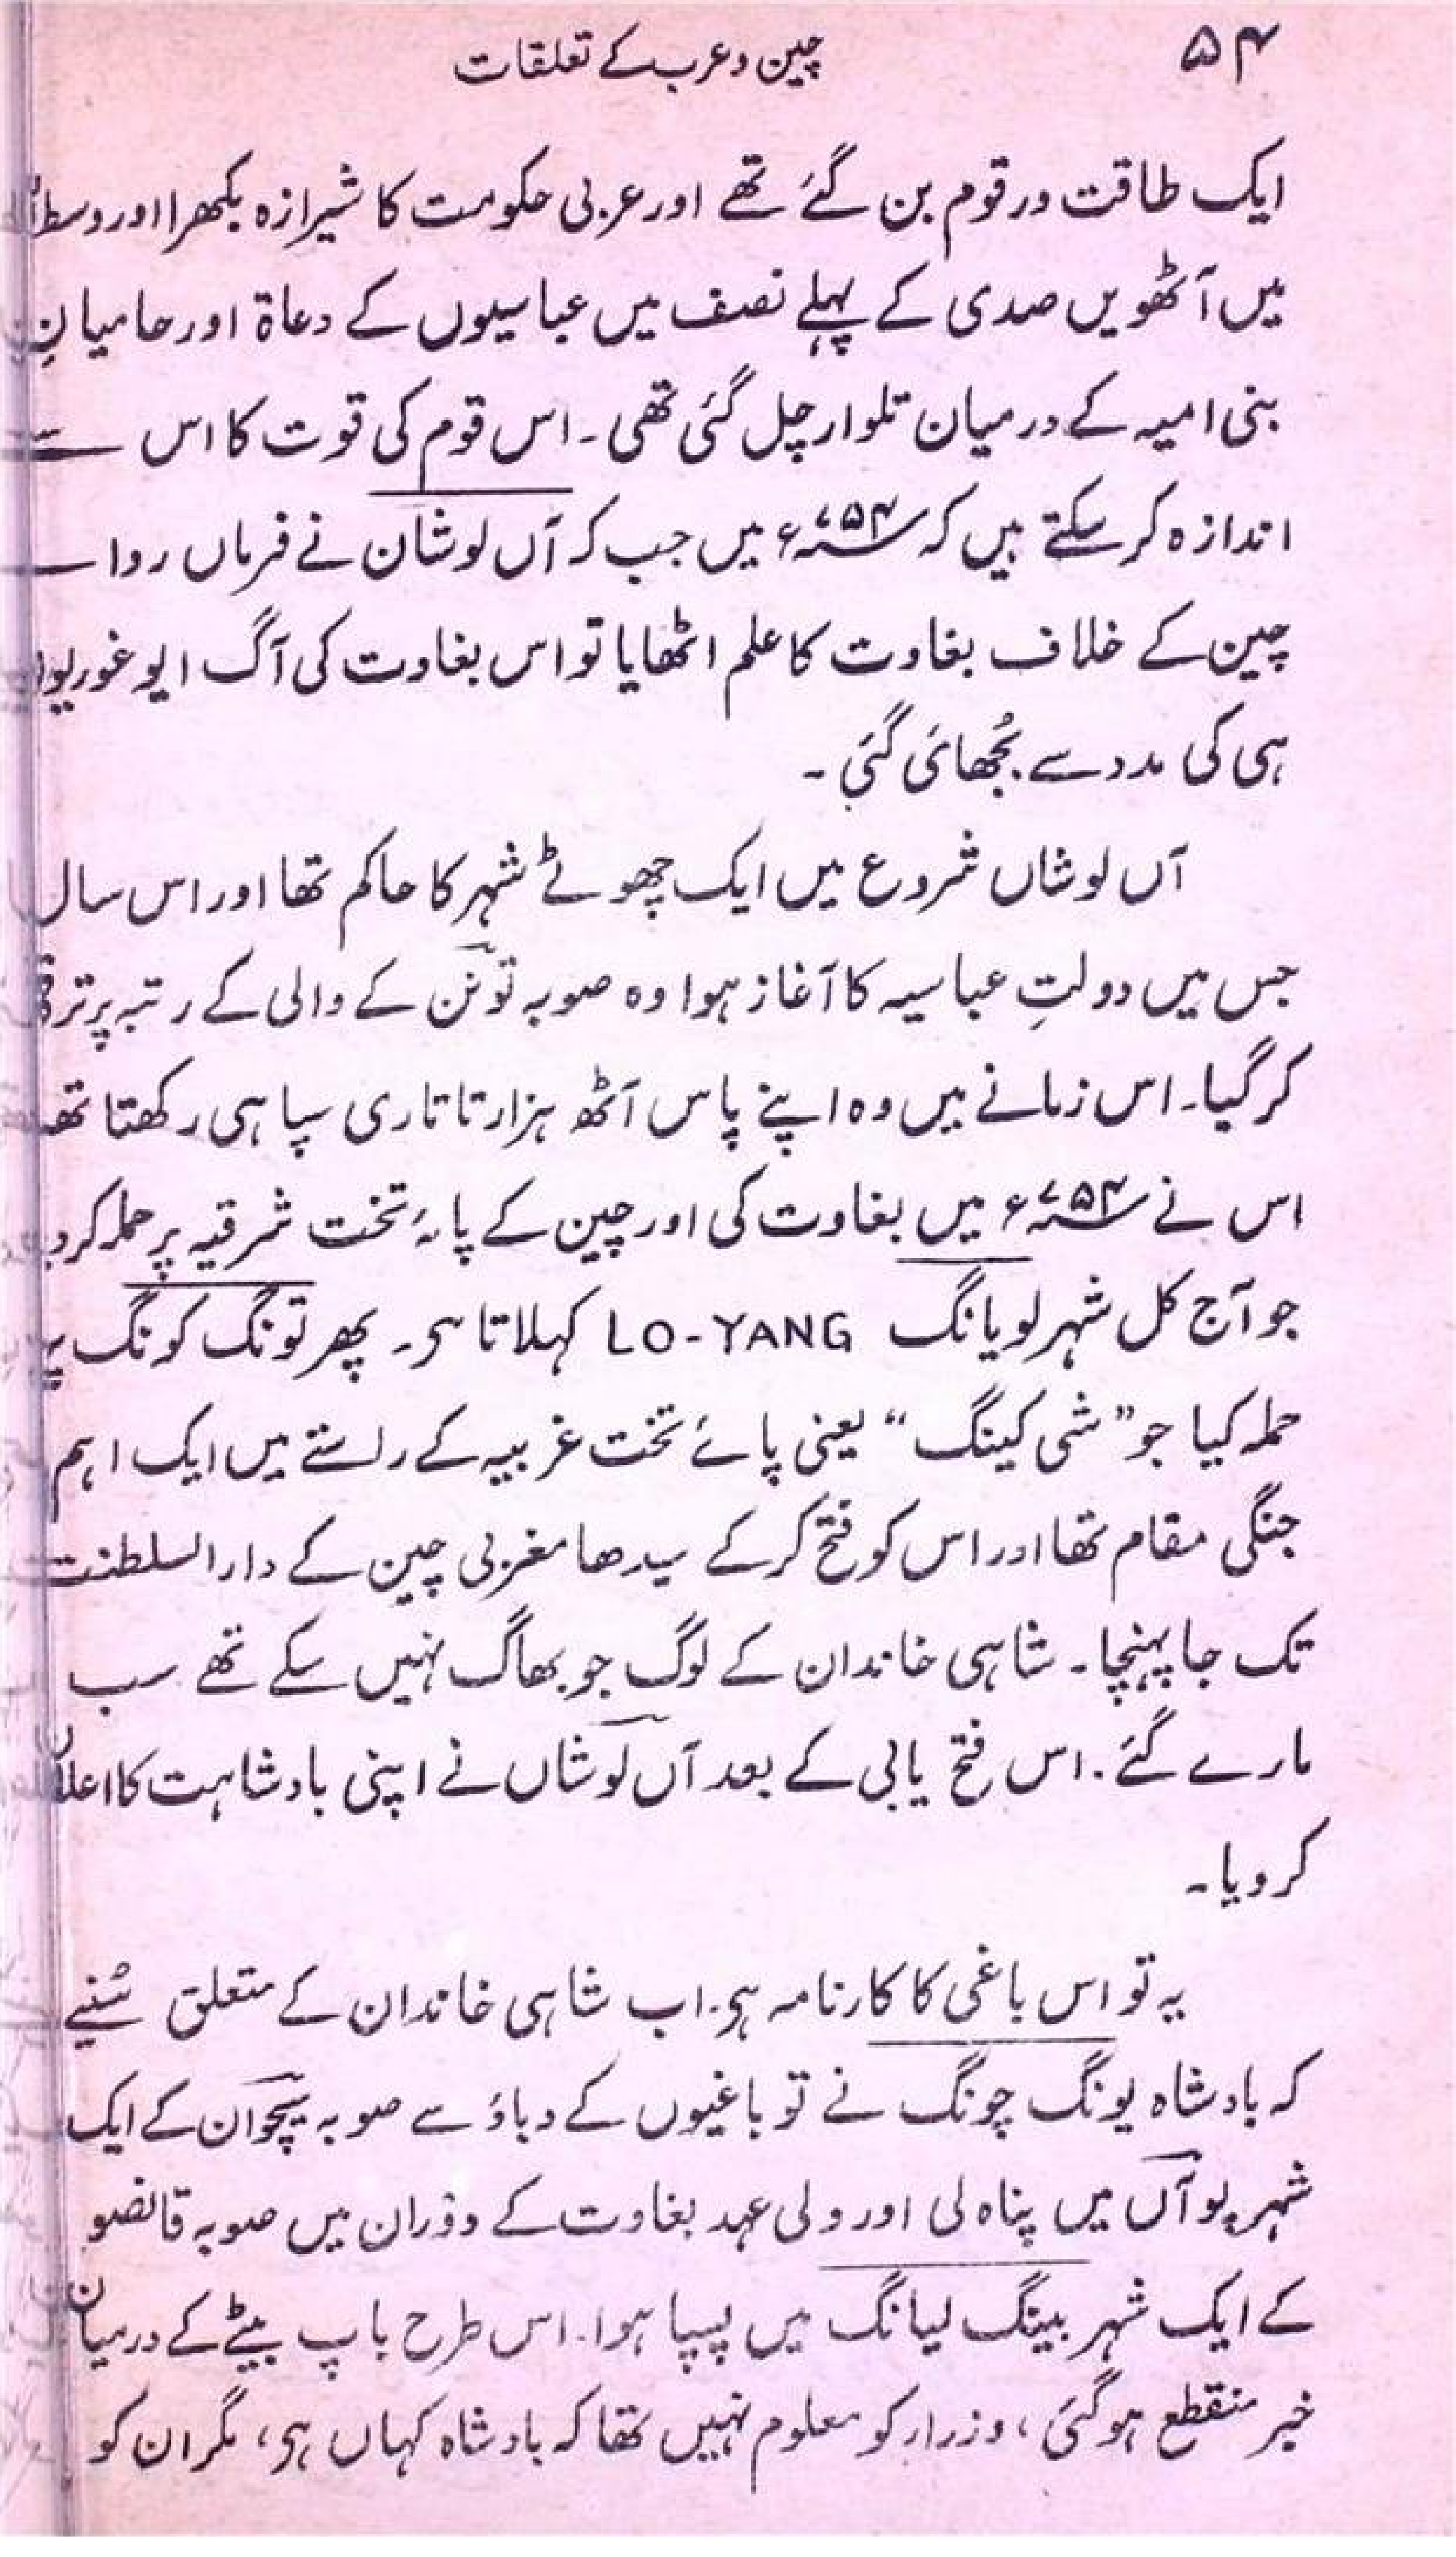 ۵۴
چین و عرب کے تعلقات
ایک طاقت ور قوم بن گئے تھے اور عربی حکومت کا شیرازہ بکھرا اور وسط
میں آٹھویں صدی کے پہلے نصف میں عباسیوں کے دعاۃ اور حامیانِ
بنی امیہ کے درمیان تلوار چل گئی تھی۔ اس قوم کی قوت کا اس سے
اندازہ کر سکتے ہیں کہ ۷۵۴ء میں جب کہ آں لوشان نے فرماں روا
چین کے خلاف بغاوت کا علم اٹھایا تو اس بغاوت کی آگ ایوغوریوں
ہی کی مدد سے بُجھائی گئی۔
آں لوشاں شروع میں ایک چھوٹے شہر کا حاکم تھا اور اس سال
جس میں دولتِ عباسیہ کا آغاز ہوا وہ صوبہ تونن کے والی کے رتبہ پر ترقی
کر گیا۔ اس زمانے میں وہ اپنے پاس آٹھ ہزار تاتاری سپاہی رکھتا تھا
اس نے ۷۵۴ء میں بغاوت کی اور چین کے پائۂ تخت شرقیہ پر حملہ کر دیا
جو آج کل شہر لویانگ LO-YANG کہلاتا ہی۔ پھر تونگ کونگ پر
حملہ کیا جو ”شی کینگ“ یعنی پائے تخت غربیہ کے راستے میں ایک اہم
جنگی مقام تھا اور اس کو فتح کر کے سیدھا مغربی چین کے دارالسلطنت
تک جا پہنچا۔ شاہی خاندان کے لوگ جو بھاگ نہیں سکے تھے سب
مارے گئے۔ اس فتح یابی کے بعد آں لوشاں نے اپنی بادشاہت کا اعلان
کر دیا۔
یہ تو اس باغی کا کارنامہ ہی۔ اب شاہی خاندان کے متعلق سُنیے
کہ بادشاہ یونگ چونگ نے تو باغیوں کے دباؤ سے صوبہ سیچوان کے ایک
شہر پوآں میں پناہ لی اور ولی عہد بغاوت کے دوران میں صوبہ قانصو
کے ایک شہر بینگ لیانگ میں پسپا ہوا۔ اس طرح باپ بیٹے کے درمیان
خبر منقطع ہو گئی، وزرار کو معلوم نہیں تھا کہ بادشاہ کہاں ہی، مگر ان کو